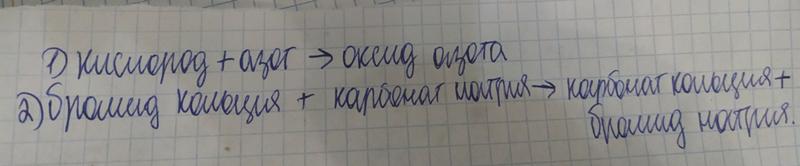 1) кислород + азот → оксид азота
2) бромид кальция + карбонат натрия → карбонат кальция +
бромид натрия.